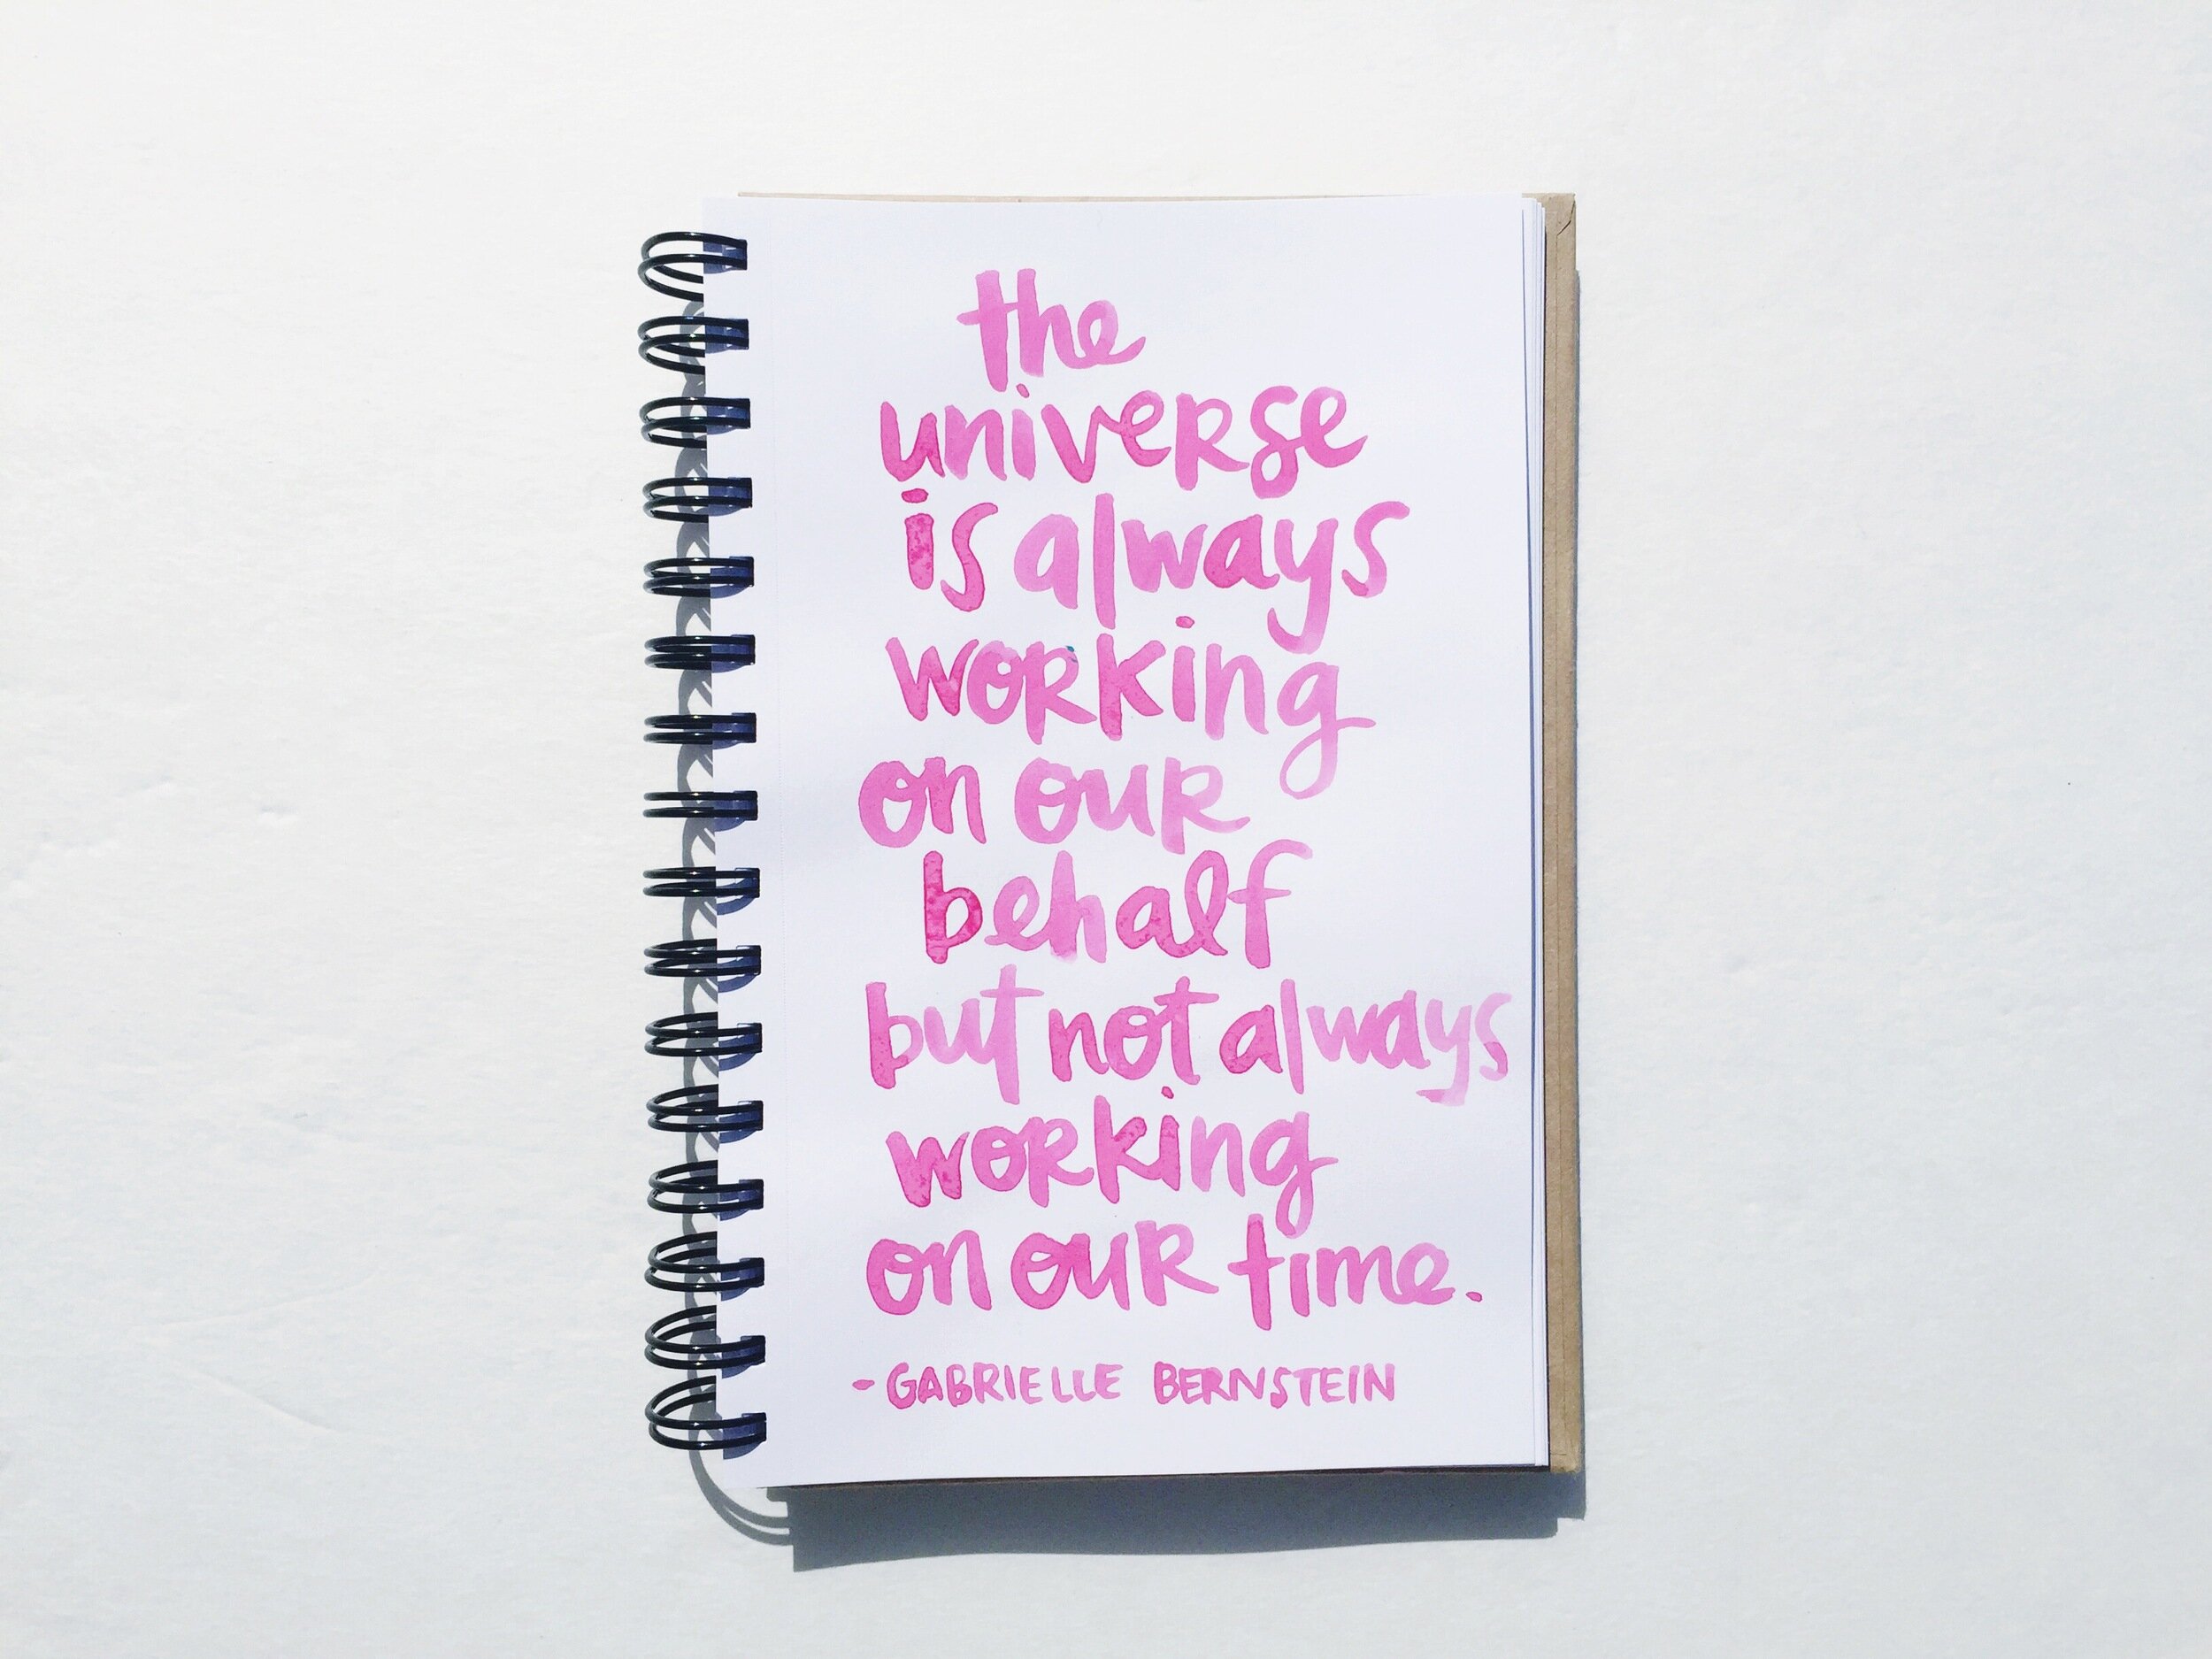 the
universe
is always
working
on our
behalf
but not always
working
on our time.
- GABRIELLE BERNSTEIN